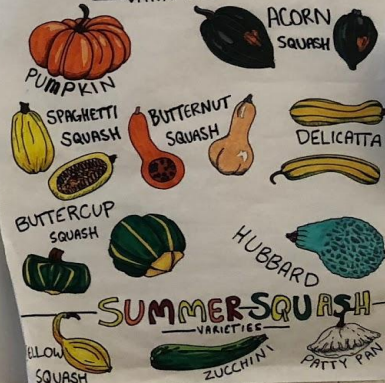 PUMPKIN
ACORN
SQUASH
SPAGHETTI
SQUASH
BUTTERNUT
SQUASH
DELICATTA
BUTTERCUP
SQUASH
HUBBARD
SUMMER SQUASH
VARIETIES
ELLOW
SQUASH
ZUCCHINI
PATTY PAN